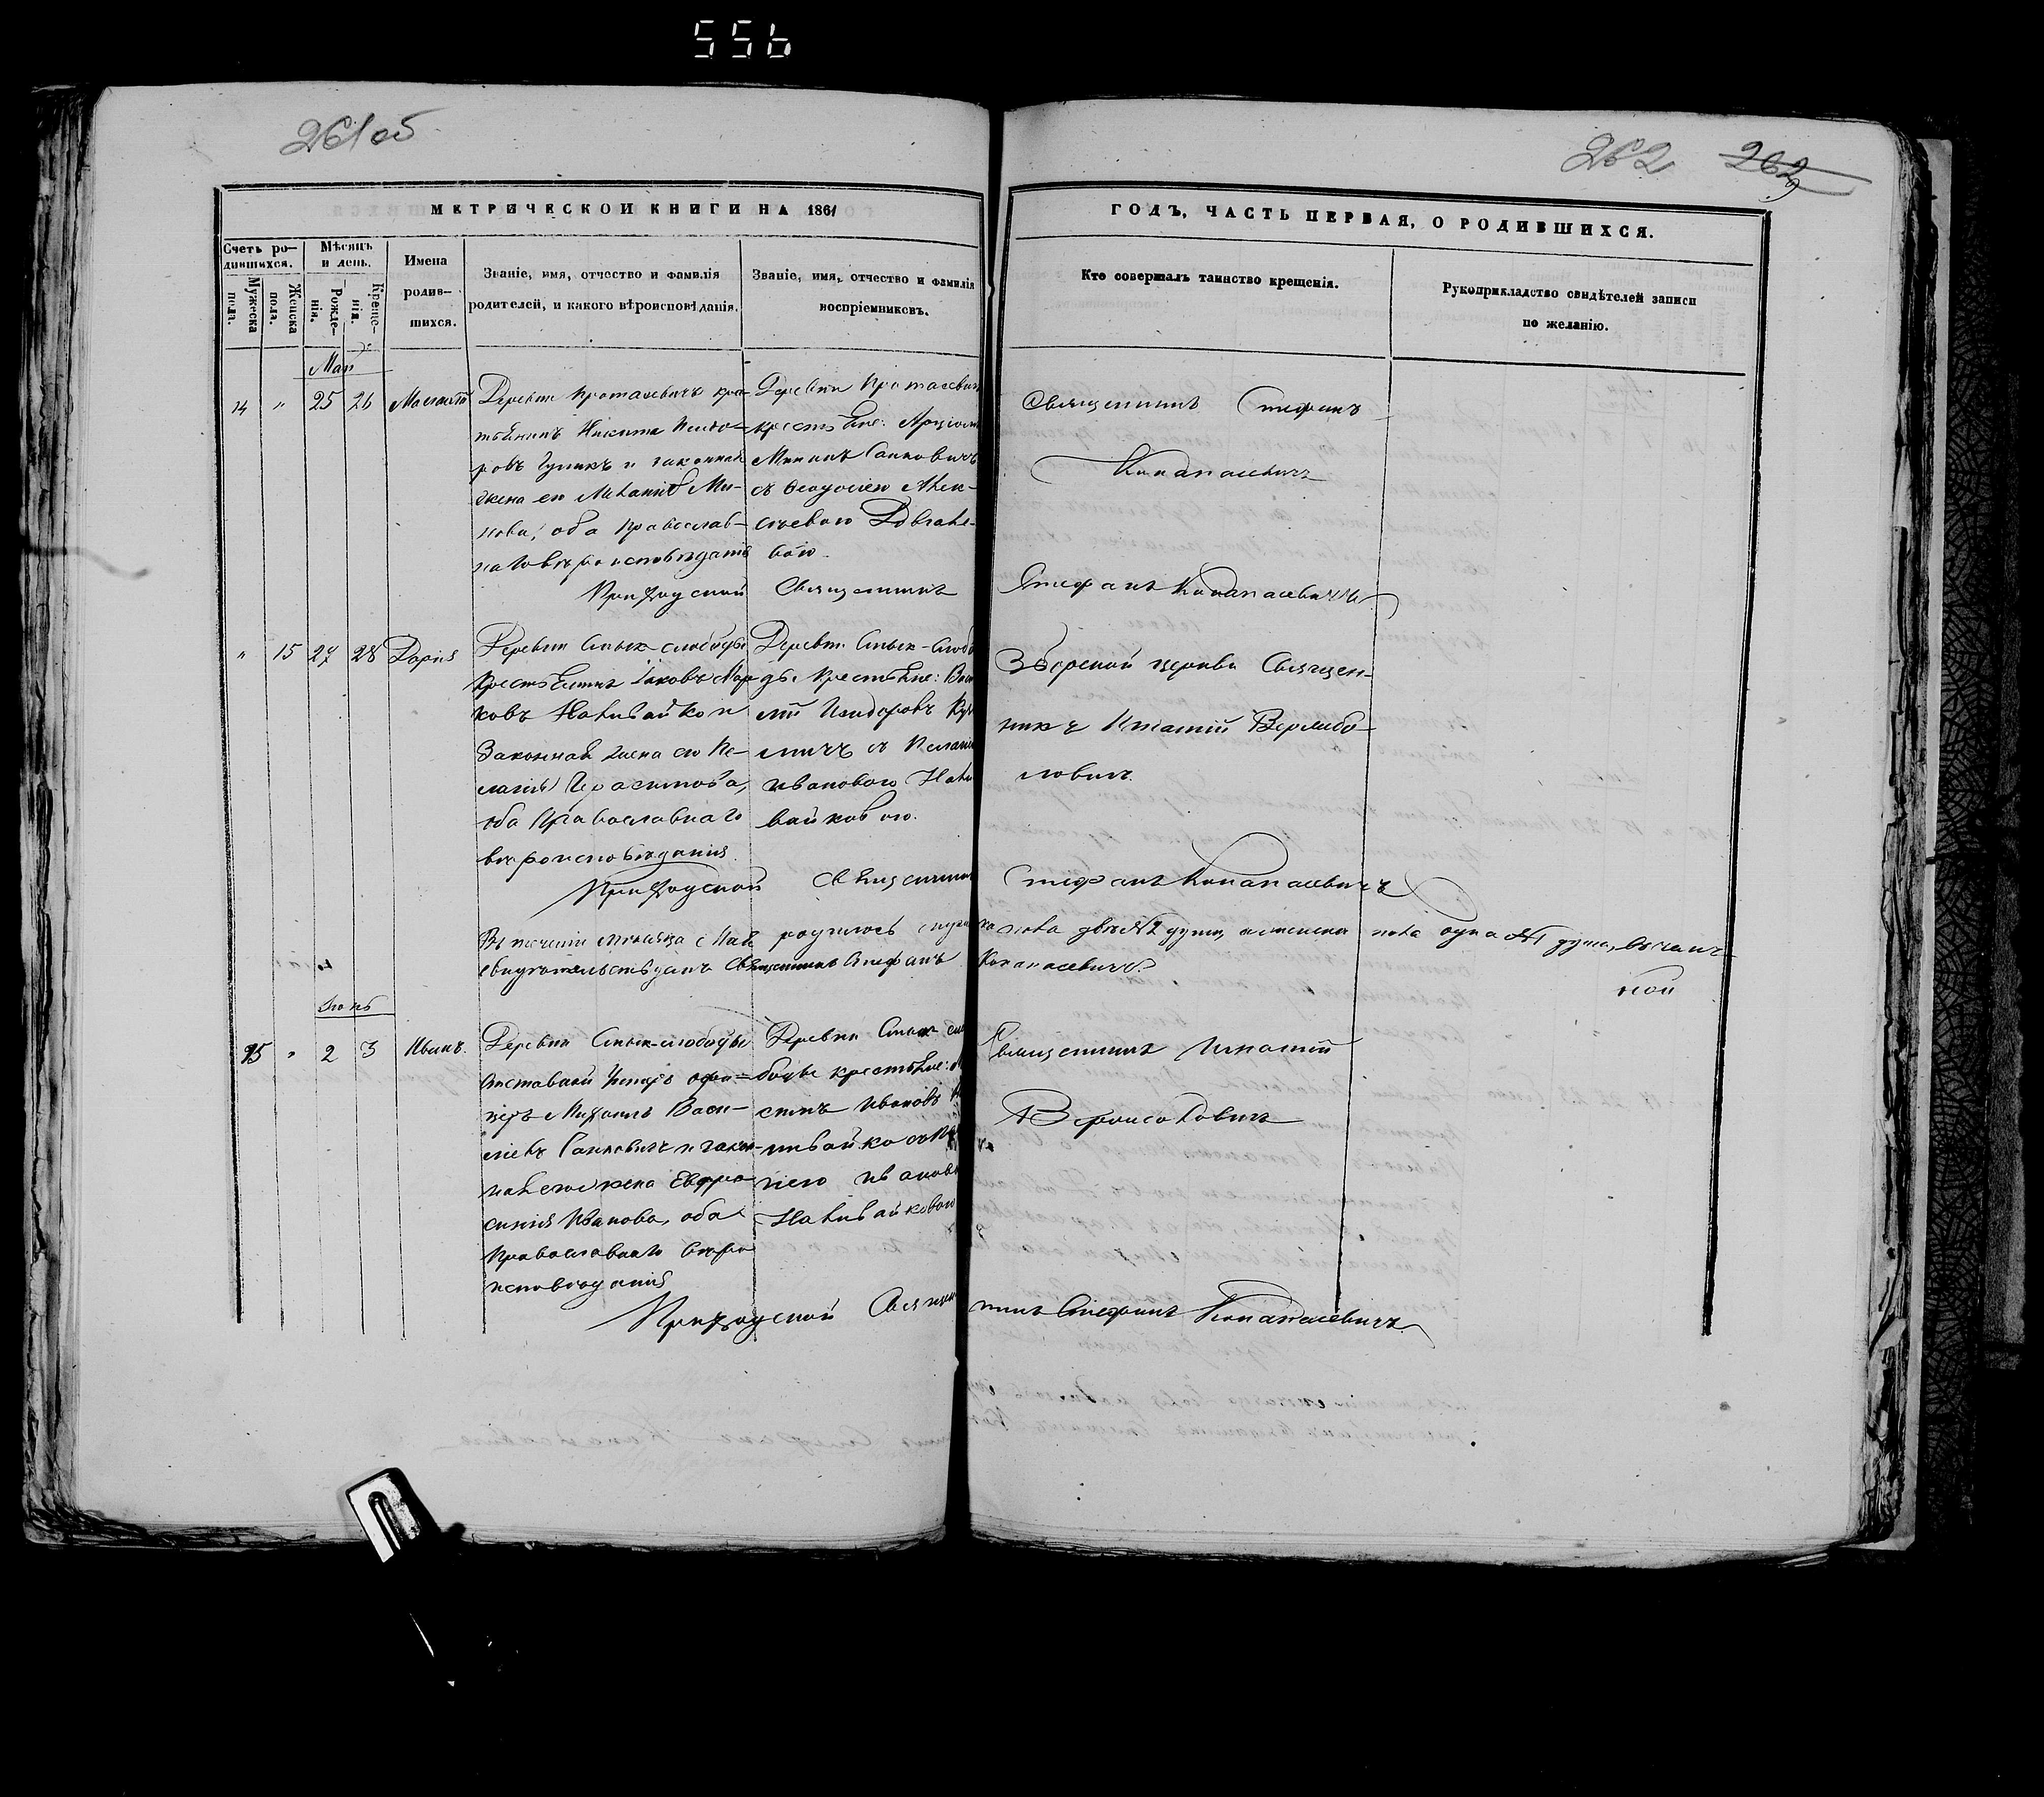 556
261 об
262 262
МЕТРИЧЕСКОЙ КНИГИ НА 1861
ГОДЪ, ЧАСТЬ ПЕРВАЯ, О РОДИВШИХСЯ.
Счетъ ро-
дившихся.
Мужеска
пола.
Женска
пола.
Мѣсяцъ
и день.
Рожде-
нія.
Креще-
нія.
Имена
родив-
шихся.
Званіе, имя, отчество и фамилія
родителей, и какого вѣроисповѣданія.
Званіе, имя, отчество и фамилія
воспріемниковъ.
Кто совершалъ таинство крещенія.
Рукоприкладство свидѣтелей записи
по желанію.
Май
14 " 25 26
Деревни Протасевичъ кре-
стьянинъ Никита Исидо-
ровъ и законная
жена его Меланія Ми-
нова, оба православ-
наго вѣроисповѣданія
Деревни Протасевичъ
крестьяне:
Мининъ Санковичъ
съ Ѳеодосіею Алек-
сѣевою
вою.
Священникъ Стефанъ
Конапасевичъ
Приходскій Священникъ Стефанъ Конапасевичъ
" 15 27 28 Дарія
Деревни Смык-слободы
крестьянинъ Іаковъ Мар-
ковъ Наливайко и
законная жена его Пе-
лагія Герасимова,
оба Православнаго
вѣроисповѣданія.
Деревни Смык-Слобо
ды крестьяне: Васи
лій Исидоровъ
съ Пелагіи
Ивановою Нали
вайковою.
Збурской церкви Священ-
никъ Игнатій
ловичъ.
Приходскій Священникъ Стефанъ Конапасевичъ
Въ теченіи мѣсяца Мая родилось мужеска пола двѣ №2 души, а женска пола одна №1 душа, въ чемъ
свидѣтельствуетъ Священникъ Стефанъ Конапасевичъ.
Іюнь
15 " 2 3 Иванъ.
Деревни Смык-слободы
отставной Унтеръ офи-
церъ Михаилъ Васи-
ліевъ Санковичъ и закон-
ная его жена Евфро-
синія Иванова, оба
Православнаго вѣро
исповѣданія
Деревни Смык сло
боды крестьяне:
Ивановъ На
ливайко съ
Иванов
Наливайковою
Священникъ Игнатій
Приходскій Священникъ Стефанъ Конапасевичъ